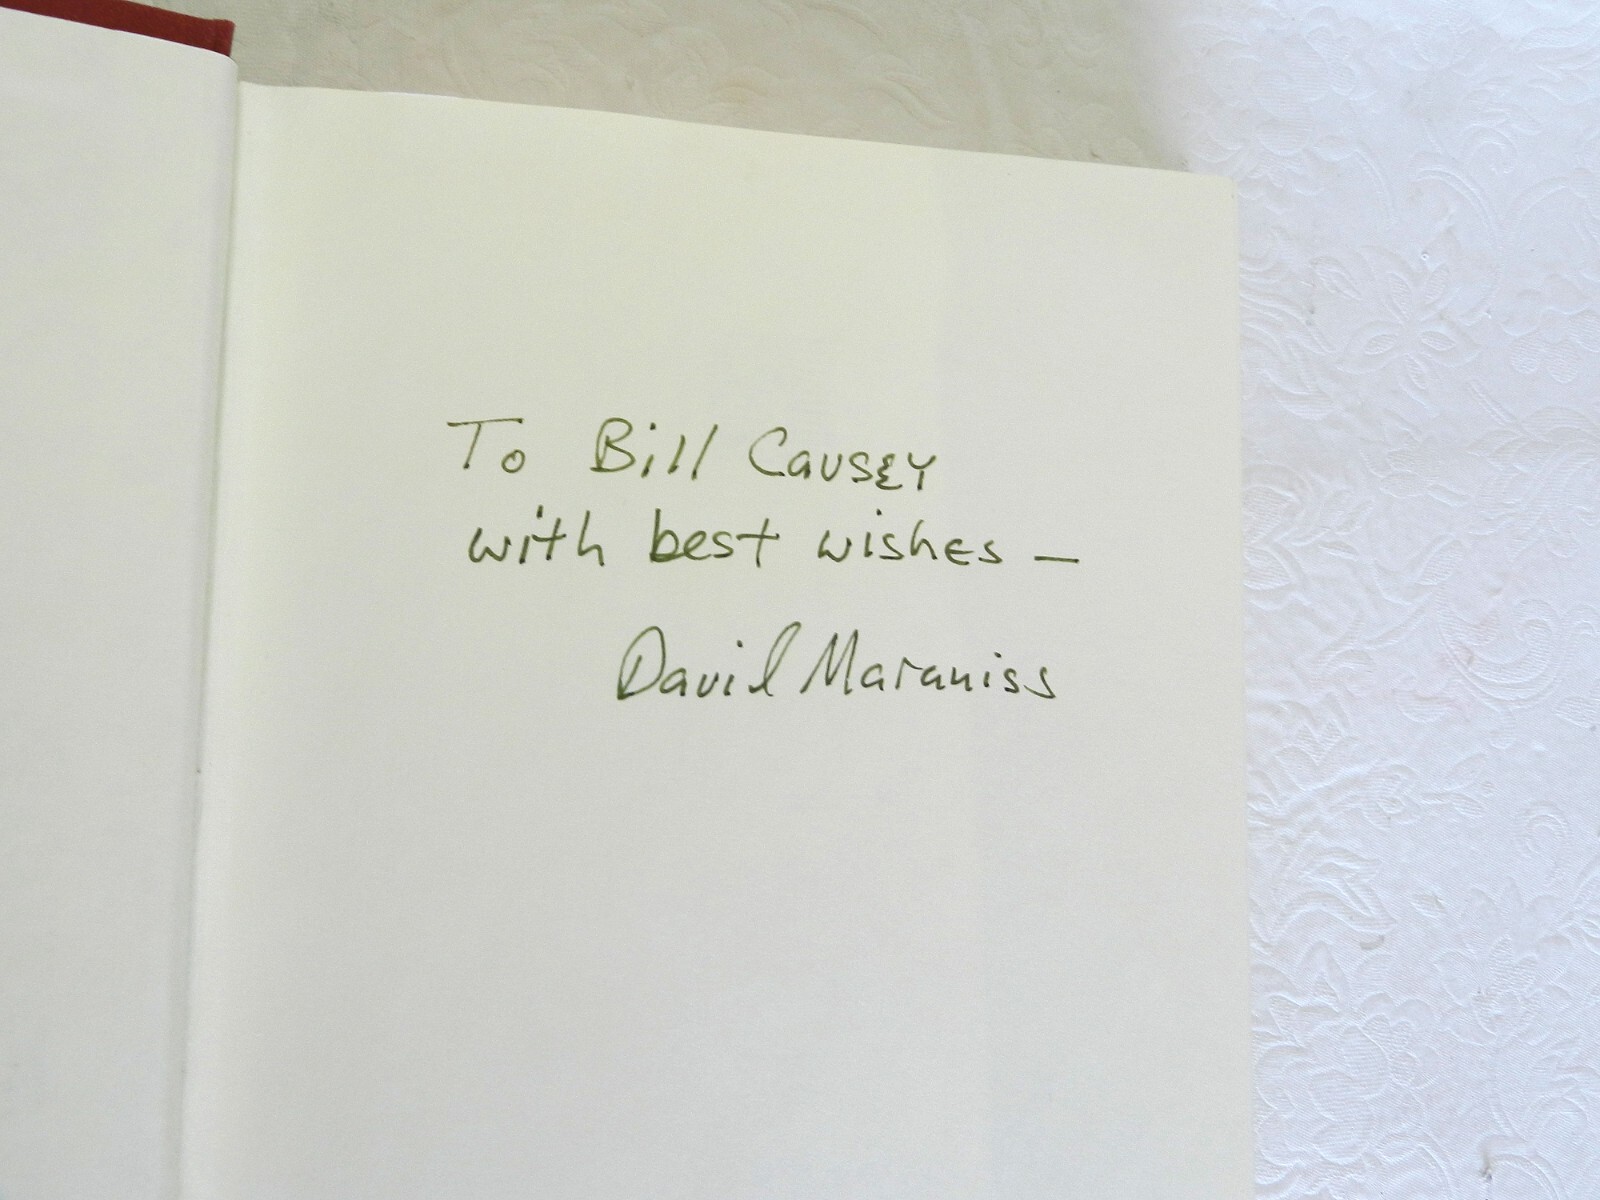 To Bill Causey
with best wishes —
David Maraniss